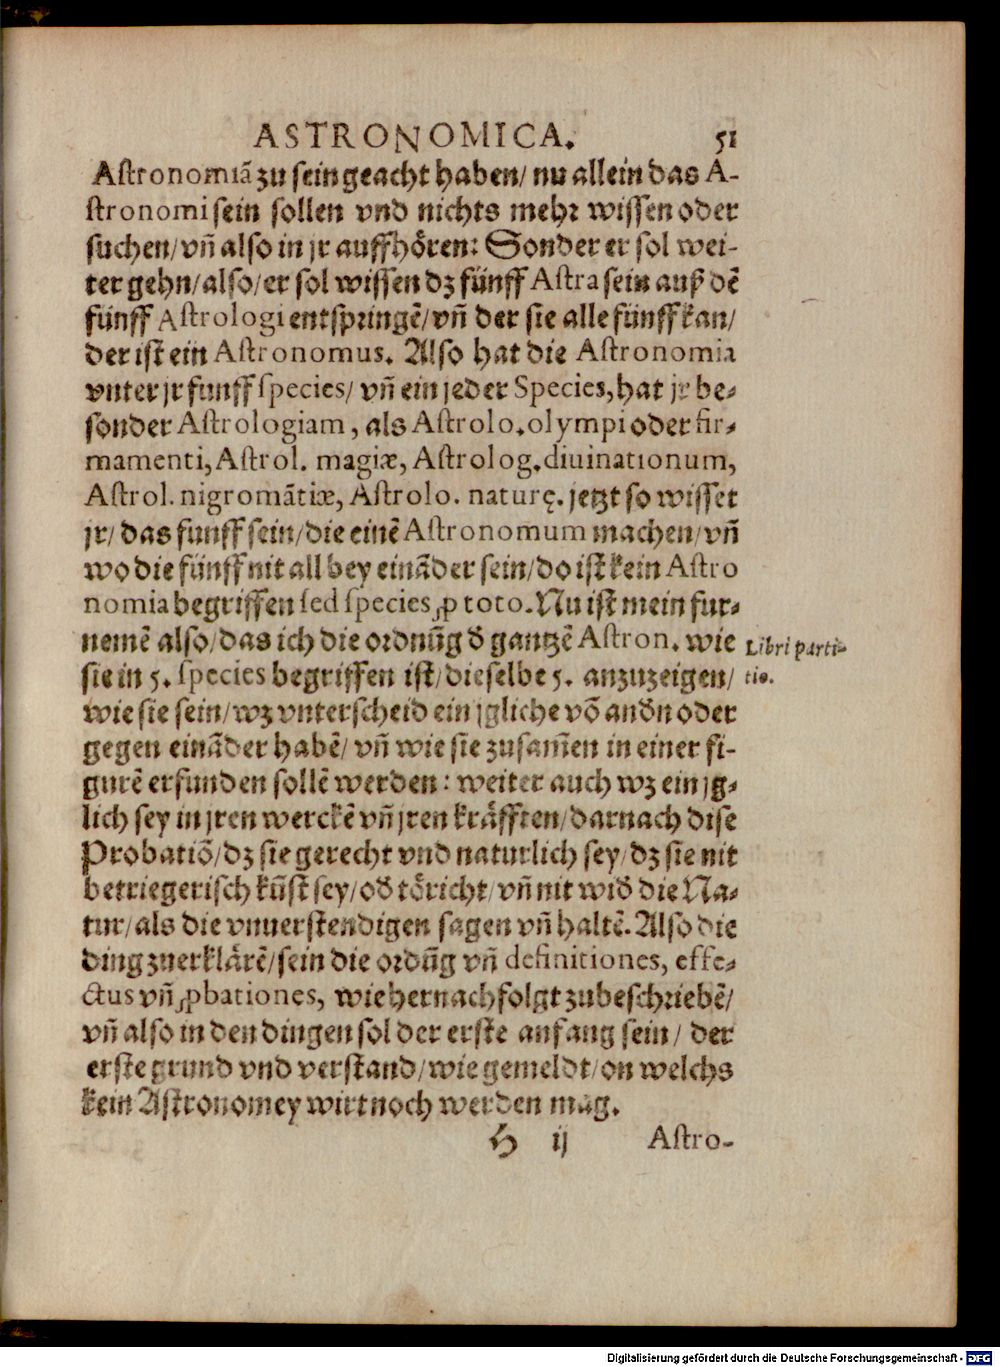 ASTRONOMICA. 51
Astronomiã zu sein geacht haben/ nu allein das A-
stronomi sein sollen vnd nichts mehr wissen oder
suchen/ vñ also in jr auffhören: Sonder er sol wei-
ter gehn/ also/ er sol wissen dz fünff Astra sein auß dẽ
fünff Astrologi entspringẽ/ vñ der sie alle fünff kan/
der ist ein Astronomus. Also hat die Astronomia
vnter jr funff species/ vñ ein jeder Species, hat jr be-
sonder Astrologiam, als Astrolo. olympi oder fir-
mamenti, Astrol. magiæ, Astrolog. diuinationum,
Astrol. nigromãtiæ, Astrolo. naturę. jetzt so wisset
jr/ das funff sein/ die einẽ Astronomum machen/ vñ
wo die fünff nit all bey einãder sein/ do ist kein Astro
nomia begriffen sed species ꝓ toto. Nu ist mein fur-
nemẽ also/ das ich die ordnũg d̕ gantzẽ Astron. wie
sie in 5. species begriffen ist/ dieselbe 5. anzuzeigen/
Libri parti-
tio.
wie sie sein/ wz vnterscheid ein jgliche võ and̕n oder
gegen einãder habẽ/ vñ wie sie zusam̃en in einer fi-
gurẽ erfunden sollẽ werden: weiter auch wz ein jg-
lich sey in jren werckẽ vñ jren kräfften/ darnach dise
Probatiõ/ dz sie gerecht vnd naturlich sey/ dz sie nit
betriegerisch kũst sey/ od̕ töricht/ vñ nit wid̕ die Na-
tur/ als die vnuerstendigen sagen vñ haltẽ. Also die
ding zuerklärẽ/ sein die ordñg vñ definitiones, effe-
ctus vñ ꝓbationes, wie hernach folgt zubeschriebẽ/
vñ also in den dingen sol der erste anfang sein/ der
erste grund vnd verstand/ wie gemeldt/ on welchs
kein Astronomey wirt noch werden mag.
H ij Astro-
Digitalisierung gefördert durch die Deutsche Forschungsgemeinschaft - DFG